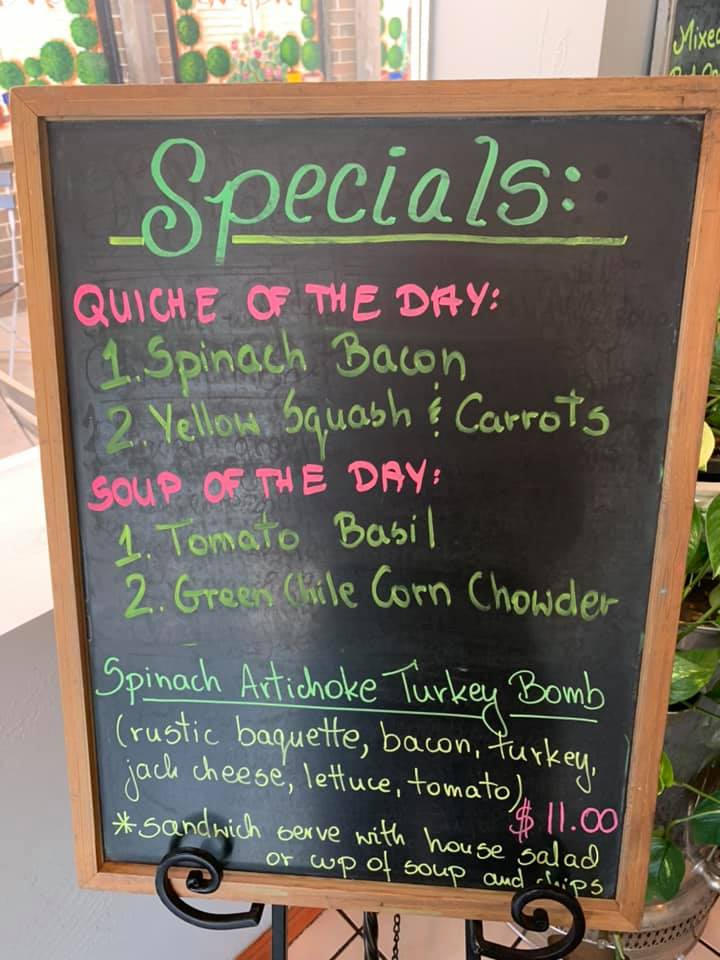 Mixed
Specials:
QUICHE OF THE DAY:
1. Spinach Bacon
2. Yellow Squash & Carrots
SOUP OF THE DAY:
1. Tomato Basil
2. Green Chile Corn Chowder
Spinach Artichoke Turkey Bomb
(rustic baquette, bacon, turkey,
jack cheese, lettuce, tomato)
$11.00
*sandwich serve with house salad
or cup of soup and chips